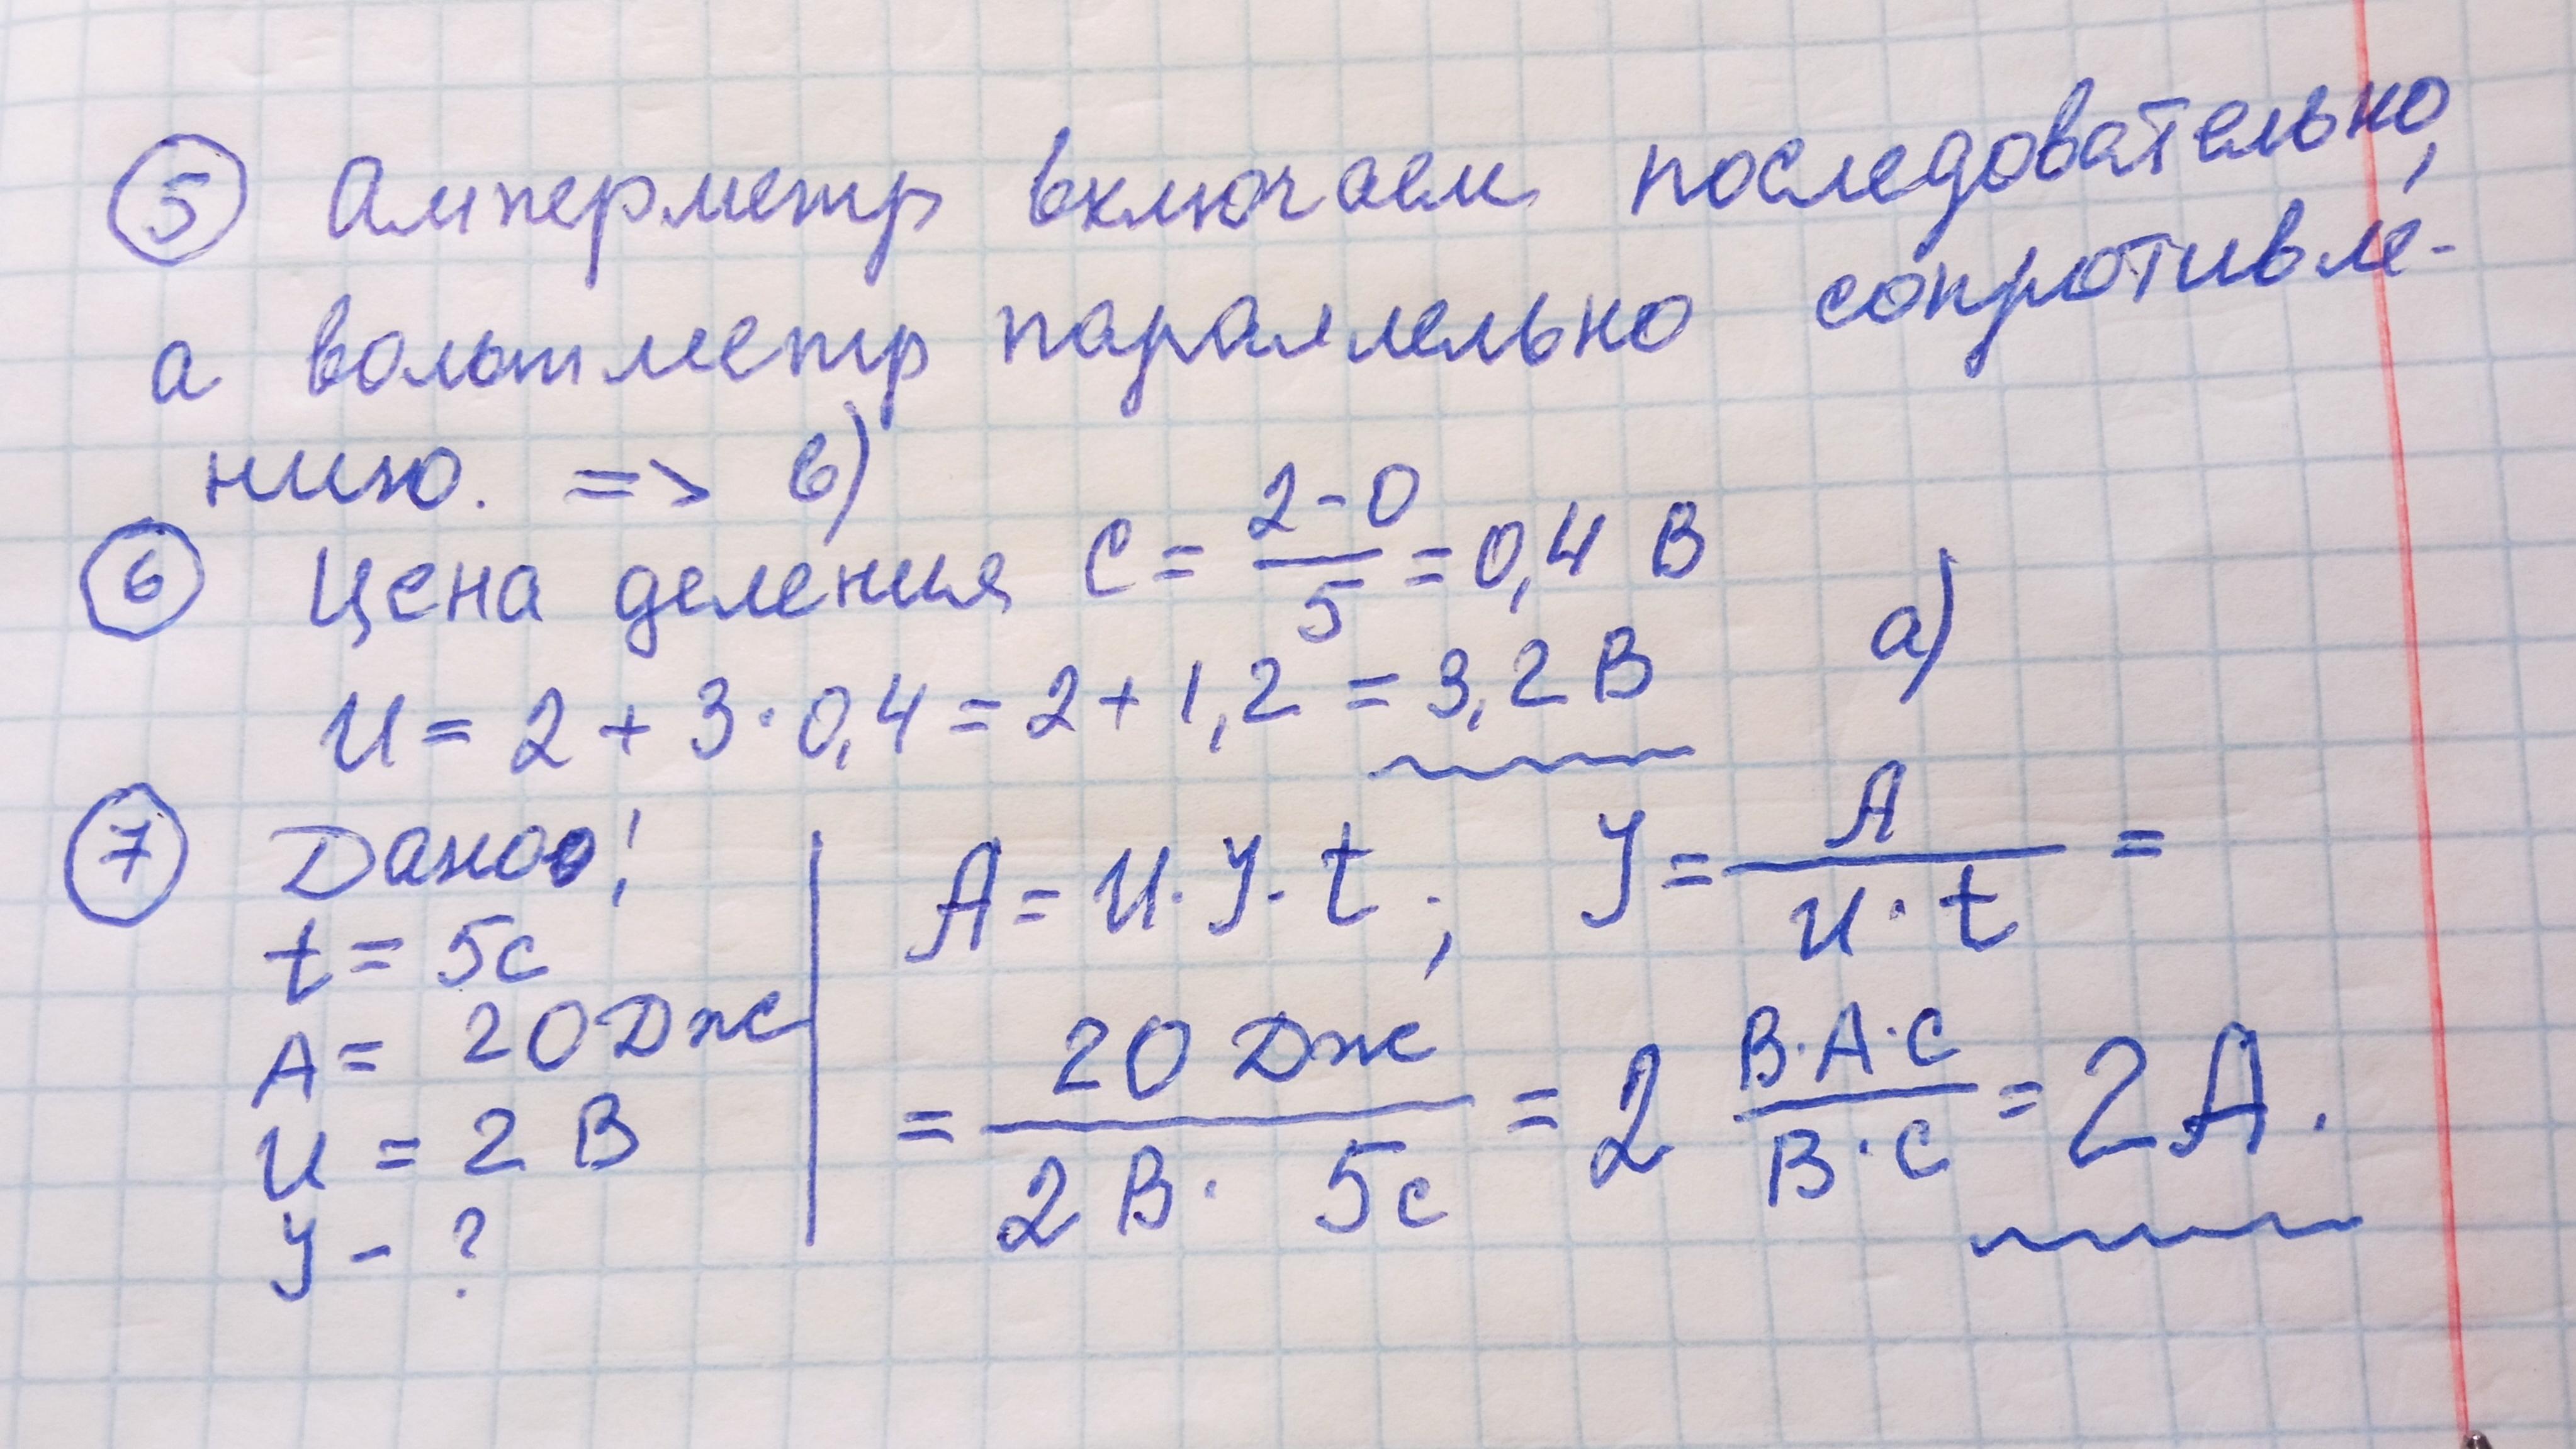 5 Амперметр включаем последовательно,
а вольтметр параллельно сопротивле-
нию. => в)
6 Цена деления C = (2-0)/5 = 0,4 В
U = 2 + 3·0,4 = 2 + 1,2 = 3,2 В а)
7 Дано:
t = 5с
A = 20 Дж
U = 2 В
J - ?
A = U·J·t; J = A/(U·t) =
= 20 Дж/(2 В·5с) = 2 В·А·с/(В·с) = 2 А.